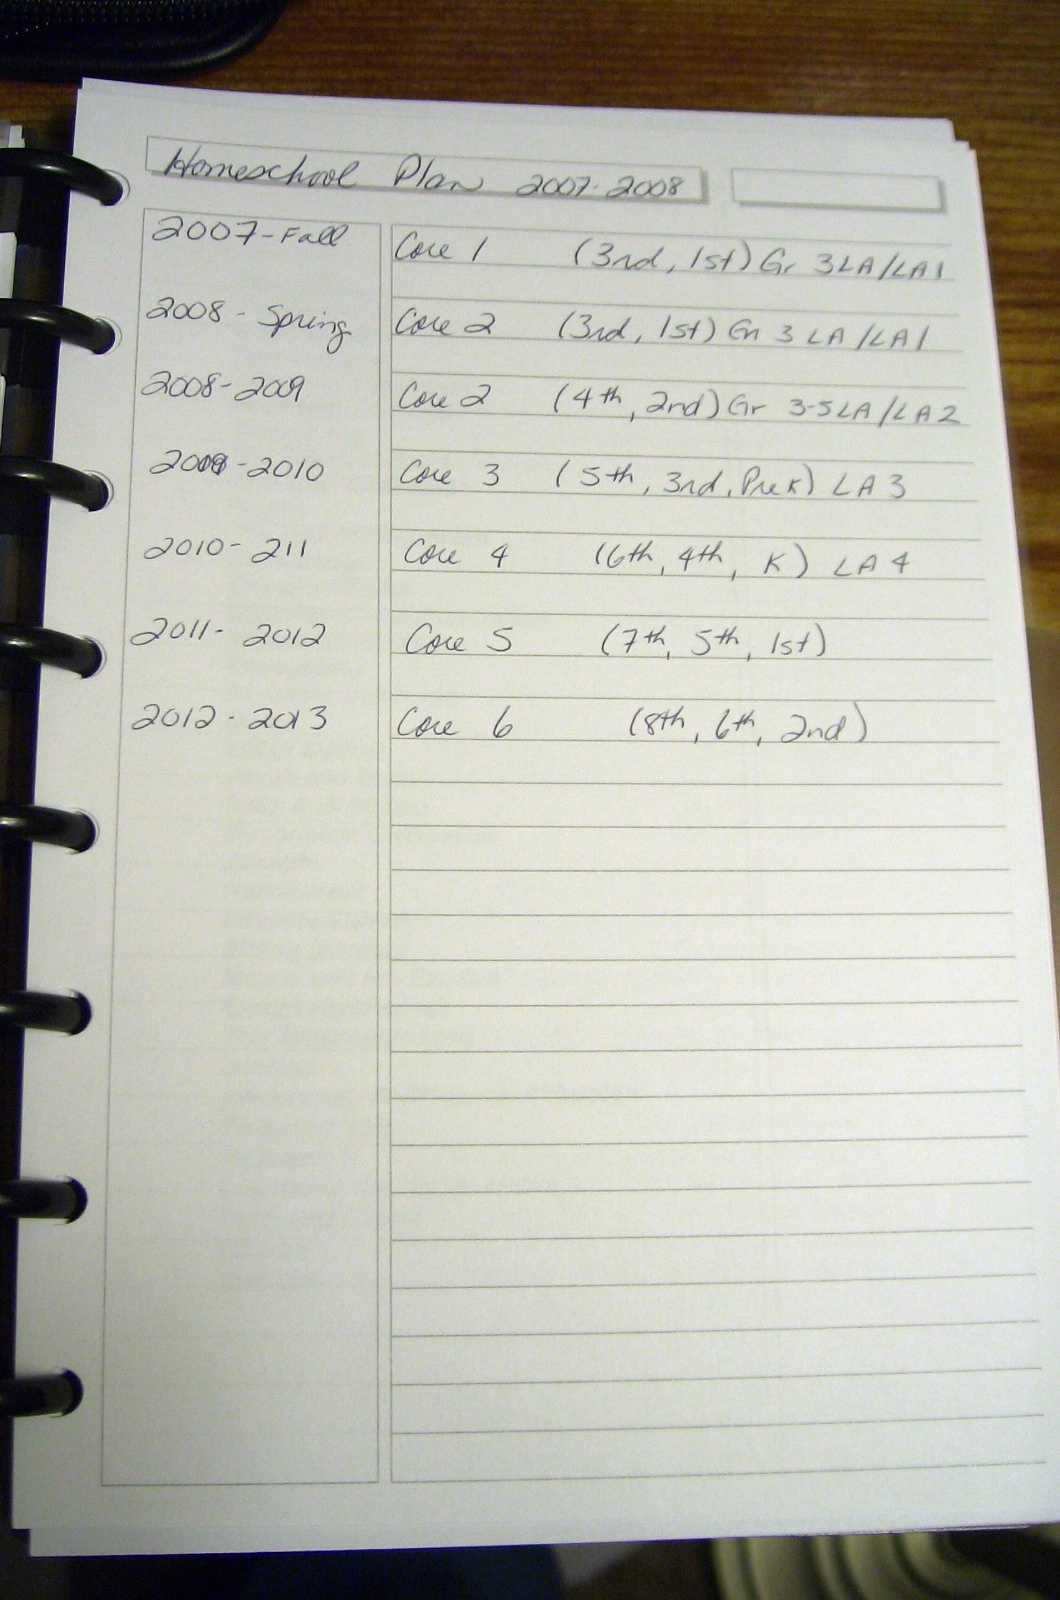 Homeschool Plan 2007-2008
2007-Fall Core 1 (3rd, 1st) Gr 3LA/LA1
2008 - Spring Core 2 (3rd, 1st) Gr 3 LA/LA1
2008-2009 Core 2 (4th, 2nd) Gr 3-5LA/LA2
2009-2010 Core 3 (5th, 3rd, PreK) LA 3
2010-211 Core 4 (6th, 4th, K) LA 4
2011-2012 Core 5 (7th, 5th, 1st)
2012-2013 Core 6 (8th, 6th, 2nd)